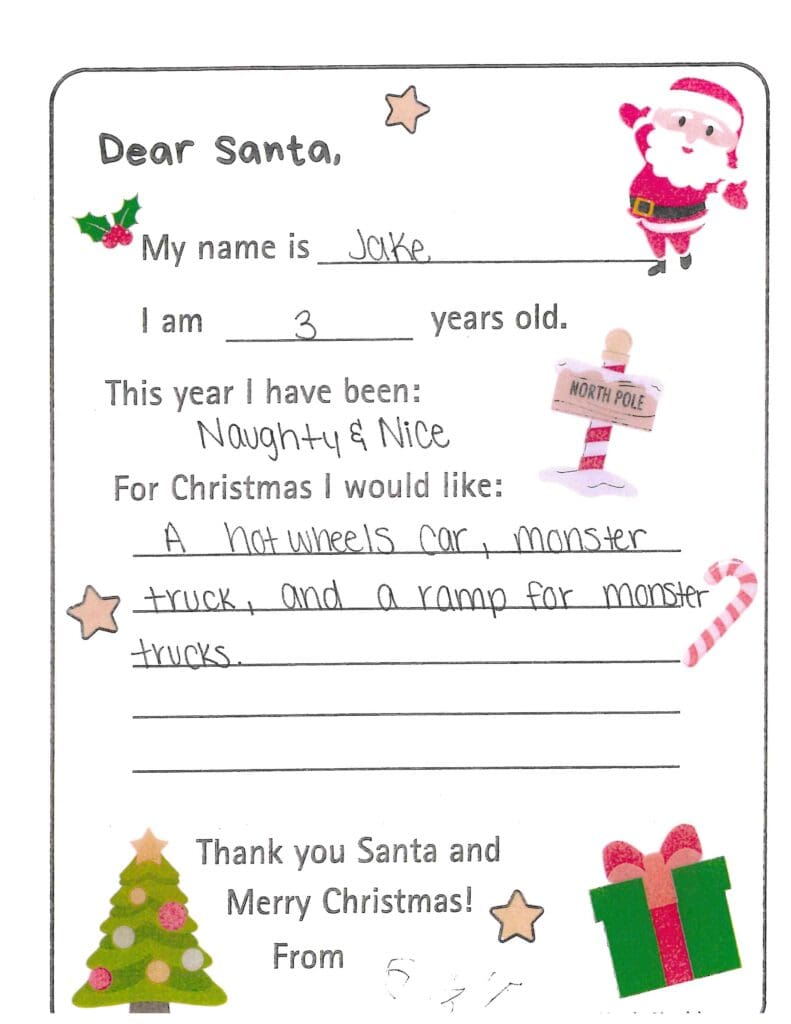 Dear Santa,
My name is Jake
I am 3 years old.
This year I have been:
NORTH POLE
Naughty & Nice
For Christmas I would like:
A hot wheels car, monster
truck, and a ramp for monster
trucks.
Thank you Santa and
Merry Christmas!
From